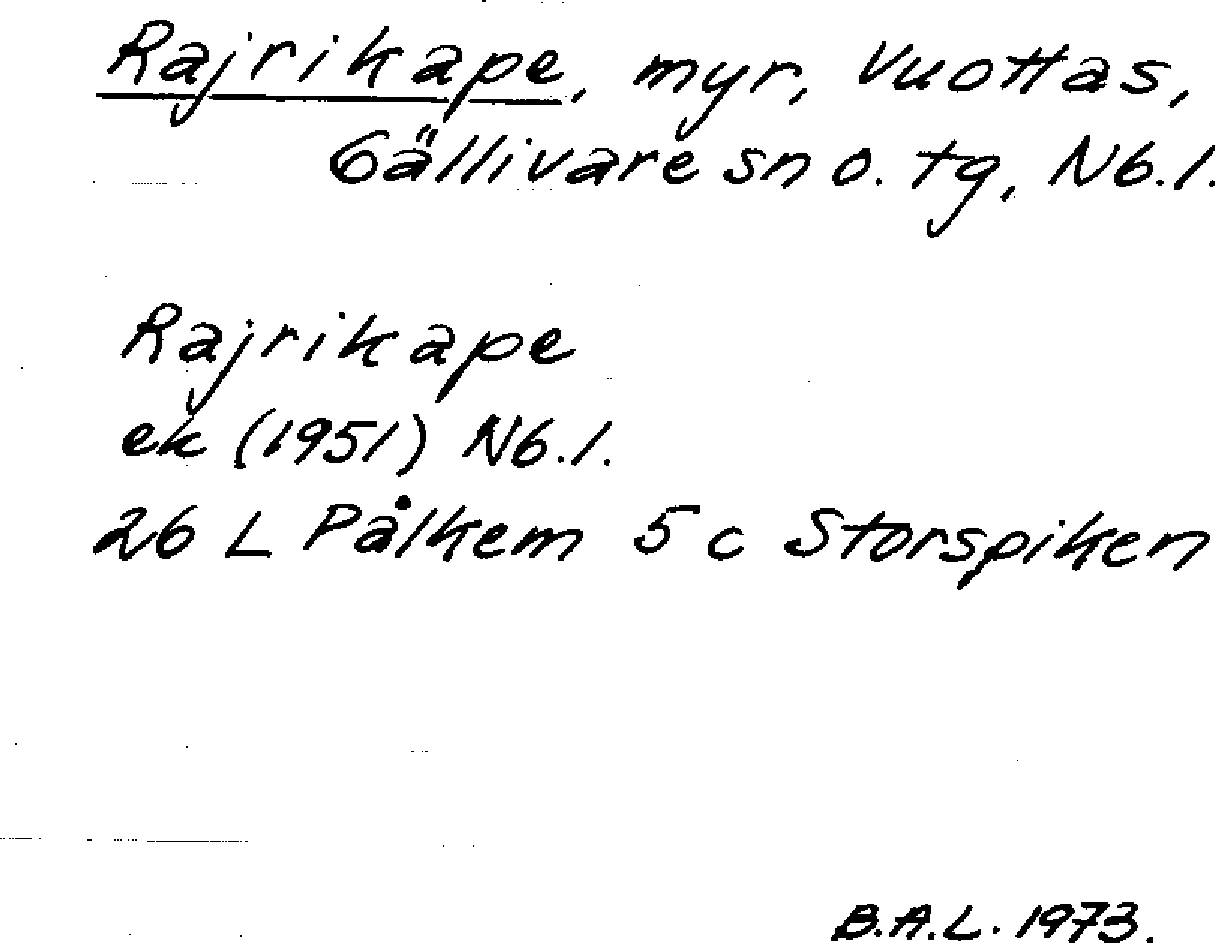 Rajrikape, myr, Vuottas,
Gällivare sn o. tg, Nb.l.
Rajrikape
ek (1951) Nb.l.
26 L Pålkem 5 c Storspiken
B.A.L. 1973.